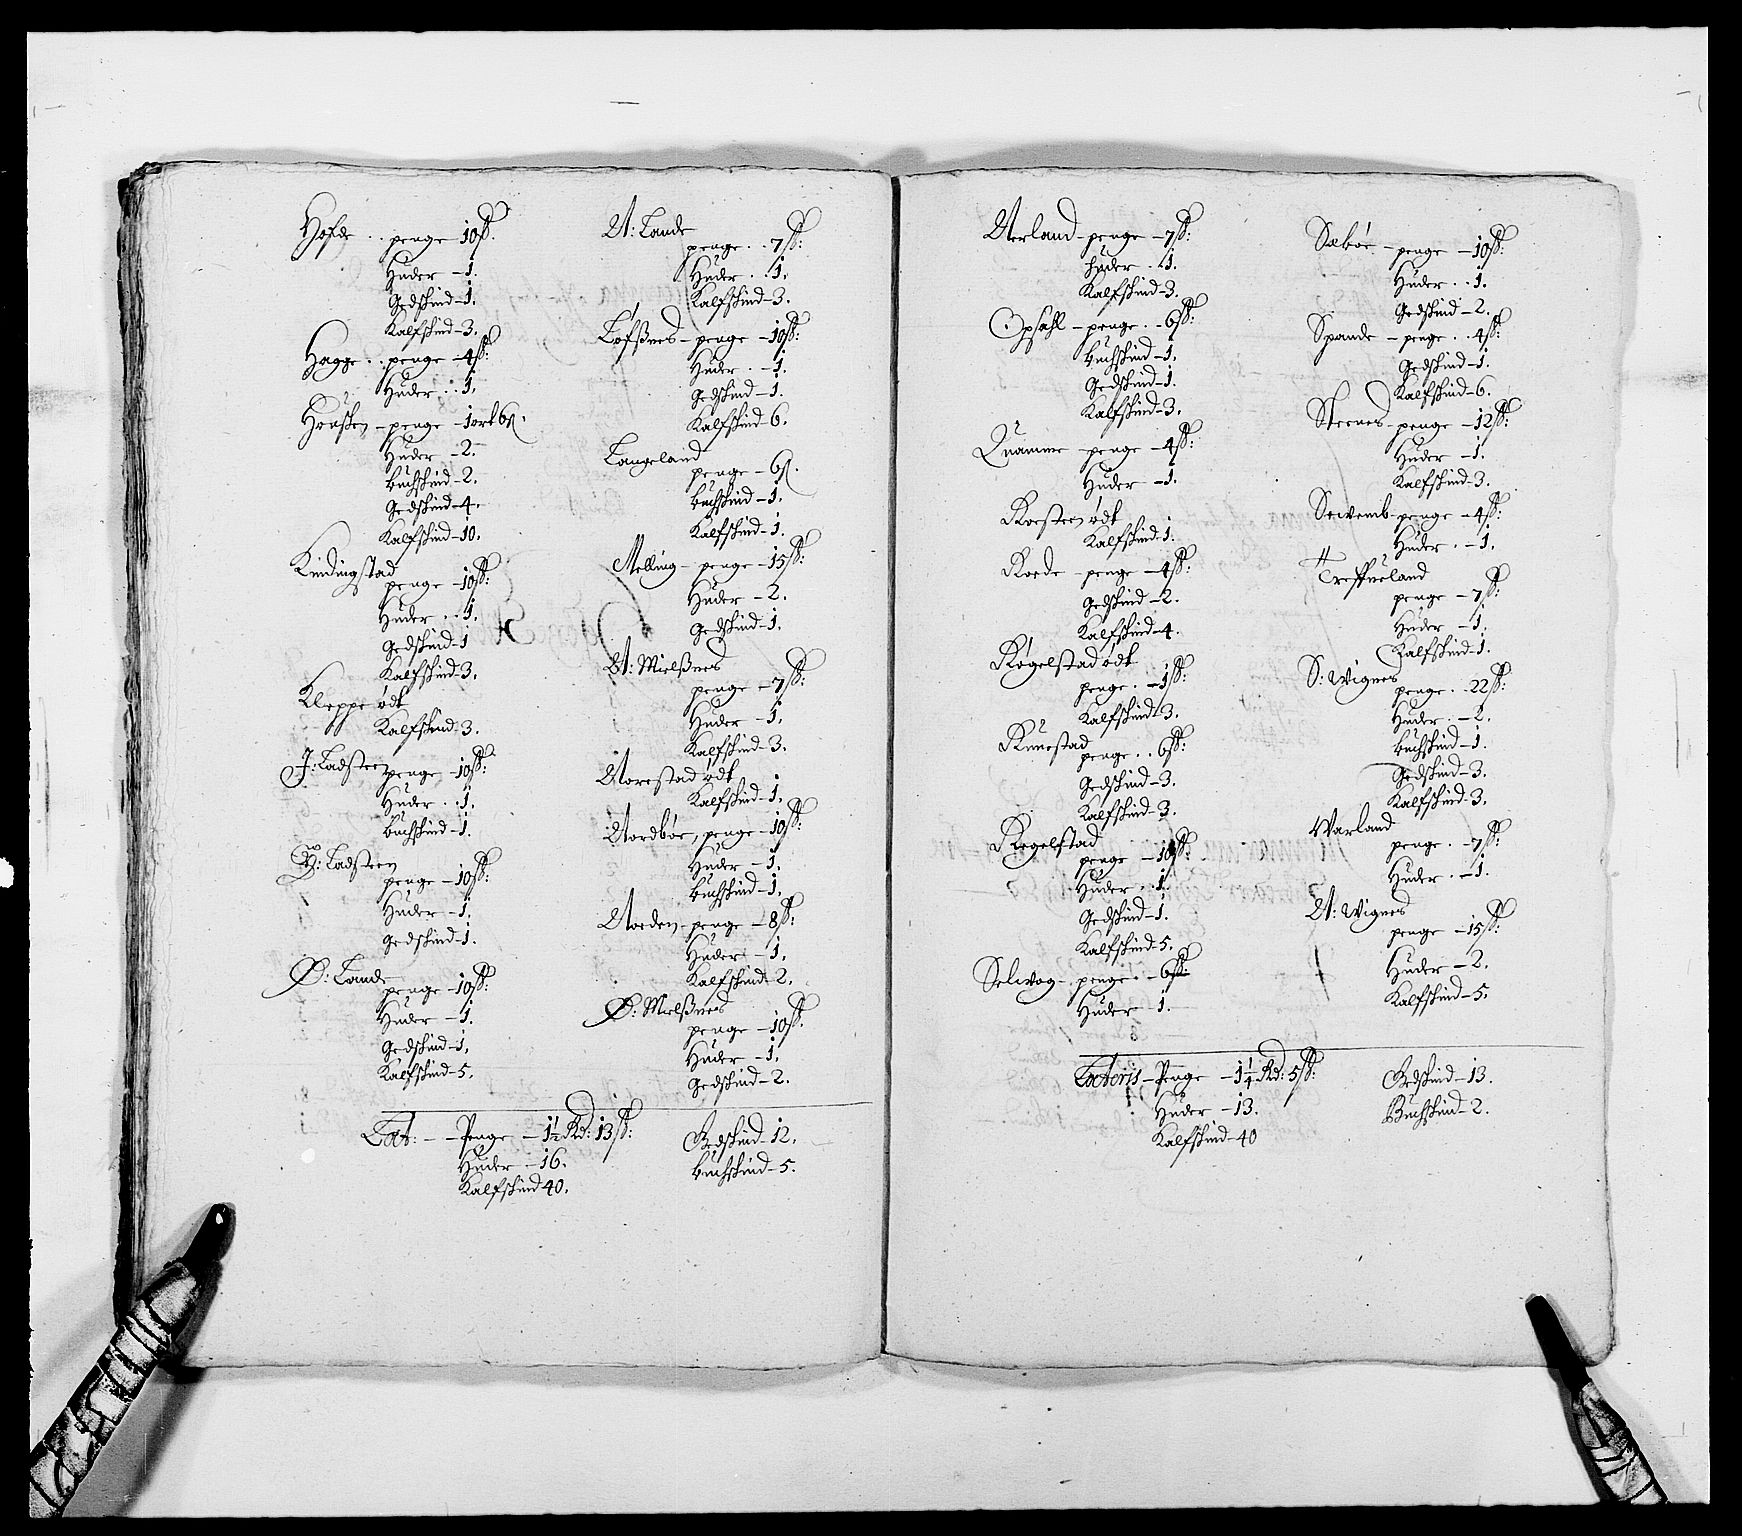 Hofde . . penge 10ß.
Huder - 1.
Gedskind - 1.
Kalfskind - 3.
Hagge . . penge - 4ß:
Huder . . 1.
Horsken - penge - 1ort 6ß.
Huder - 2.
buchskind - 2.
Gedskind - 4.
Kalfskind - 10.
Kindingstad
penge - 10ß:
Huder . . 1.
Gedskind - 1
Kalfskind - 3.
Kleppe ødt
Kalfskind - 3.
J: Ladsteen
penge - 10ß:
Huder . . 1.
buchskind - 1.
Y: Ladsteen
penge - 10ß:
Huder - 1.
Gedskind - 1.
Ø: Lande
penge - 10ß:
Huder - 1.
Gedskind - 1.
Kalfskind - 5.
Lat: - - Penge - 1½ Rd: 13ß:
Huder - 16.
Kalfskind 40.
Gedskind - 12.
buchskind - 5.
N: Lande
penge . . 7ß:
Huder . . 1.
Kalfskind - 3.
Løfßnes - penge - 10ß:
Huder . - 1.
Gedskind - 1.
Kalfskind - 6.
Langeland
penge - 6ß.
buchskind - 1.
Kalfskind - 1.
Melling - penge - 15ß:
Huder - 2.
Gedskind - 1.
N: Mielßnes
penge - 7ß:
Huder - 1.
Kalfskind - 3.
Norestad ødt
Kalfskind - 1.
Nordbøe, penge - 10ß:
Huder - 1.
buchskind - 1.
Norden - penge - 8ß:
Huder - 1.
Kalfskind 2.
Ø: Mielßnes
penge - 10ß.
Huder - 1.
Gedskind - 2.
Nerland - penge - 7ß:
huder . . 1.
Kalfskind - 3.
Opsahl - penge . - 6ß:
buchskind - 1.
Gedskind - 1.
Kalfskind - 3.
Quamme - penge - 4ß:
Huder - 1.
Rosteen ødt
Kalfskind 1.
Roede - penge - 4ß:
Gedskind - 2.
Kalfskind - 4.
Røgelstad ødt
penge . - 1ß:
Kalfskind - 3.
Runestad
penge . . 6ß:
Gedskind - 3.
Kalfskind - 3.
Regelstad
penge - 10ß:
Huder . . 1.
Gedskind - 1.
Kalfskind - 5.
Selvog - penge . - 6ß:
Huder - 1.
Lateris - Penge - 1¼ Rd: 5ß:
Huder - 13.
Kalfskind - 40
Gedskind - 13.
Buchskind - 2.
Sæbøe - penge - 10ß:
Huder . . 1.
Gedskind - 2.
Spande - penge . . 4ß:
Gedskind - 1.
Kalfskind - 6.
Sternes - penge - 12ß:
Huder - 1.
Kalfskind - 3.
penge - 4ß:
Huder . - 1.
Treffueland
penge - 7ß:
Huder - 1.
Kalfskind - 1.
S: Wignes
penge . . 22ß:
Huder . - 2.
buchskind - 1.
Gedskind - 3.
Kalfskind - 3.
Warland
penge . - 7ß:
Huder . - 1.
N: Wignes
penge - 15ß:
Huder - 2.
Kalfskind - 5.